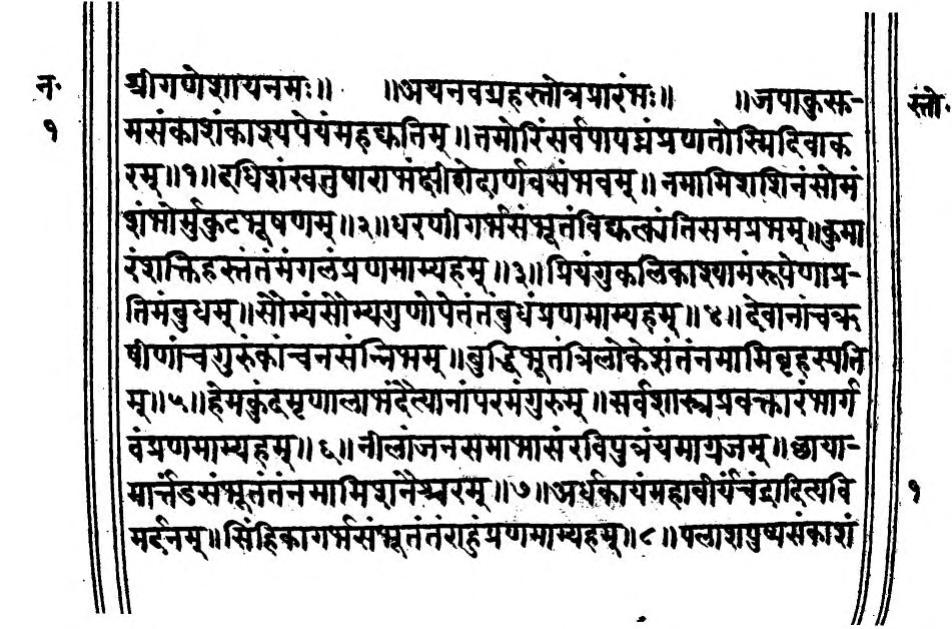 न॰
१
श्रीगणेशायनमः॥ ॥अयनवग्रहस्तोत्रप्रारंभः॥ ॥जपाकुसु-
मसंकाशंकाश्यपेयंमहद्युतिम्॥तमोरिंसर्वपापघ्नंप्रणतोस्मिदिवाक
रम्॥१॥दधिशंखतुषाराभंक्षीरोदार्णवसंभवम्॥नमामिशशिनंसोमं
शंभोर्मुकुटभूषणम्॥२॥धरणीगर्भसंभूतंविद्युत्कांतिसमप्रभम्॥कुमा
रंशक्तिहस्तंतंमंगलंप्रणमाम्यहम्॥३॥प्रियंगुकलिकाश्यामंरूपेणाप्र-
तिमंबुधम्॥सौम्यंसौम्यगुणोपेतंतंबुधंप्रणमाम्यहम्॥४॥देवानांचऋ
षीणांचगुरुंकांचनसंन्निभम्॥बुद्धिभूतंत्रिलोकेशंतंनमामिबृहस्पति
म्॥५॥हेमकुंदमृणालाभंदैत्यानांपरमंगुरुम्॥सर्वशास्त्रप्रवक्तारंभार्ग
वंप्रणमाम्यहम्॥६॥नीलांजनसमाभासंरविपुत्रंयमाग्रजम्॥छाया-
मार्त्तंडसंभूतंतंनमामिशनैश्चरम्॥७॥अर्धकायंमहावीर्यंचंद्रादित्यवि
मर्दनम्॥सिंहिकागर्भसंभूतंतंराहुंप्रणमाम्यहम्॥८॥पलाशपुष्पसंकाशं
स्तो॰
१